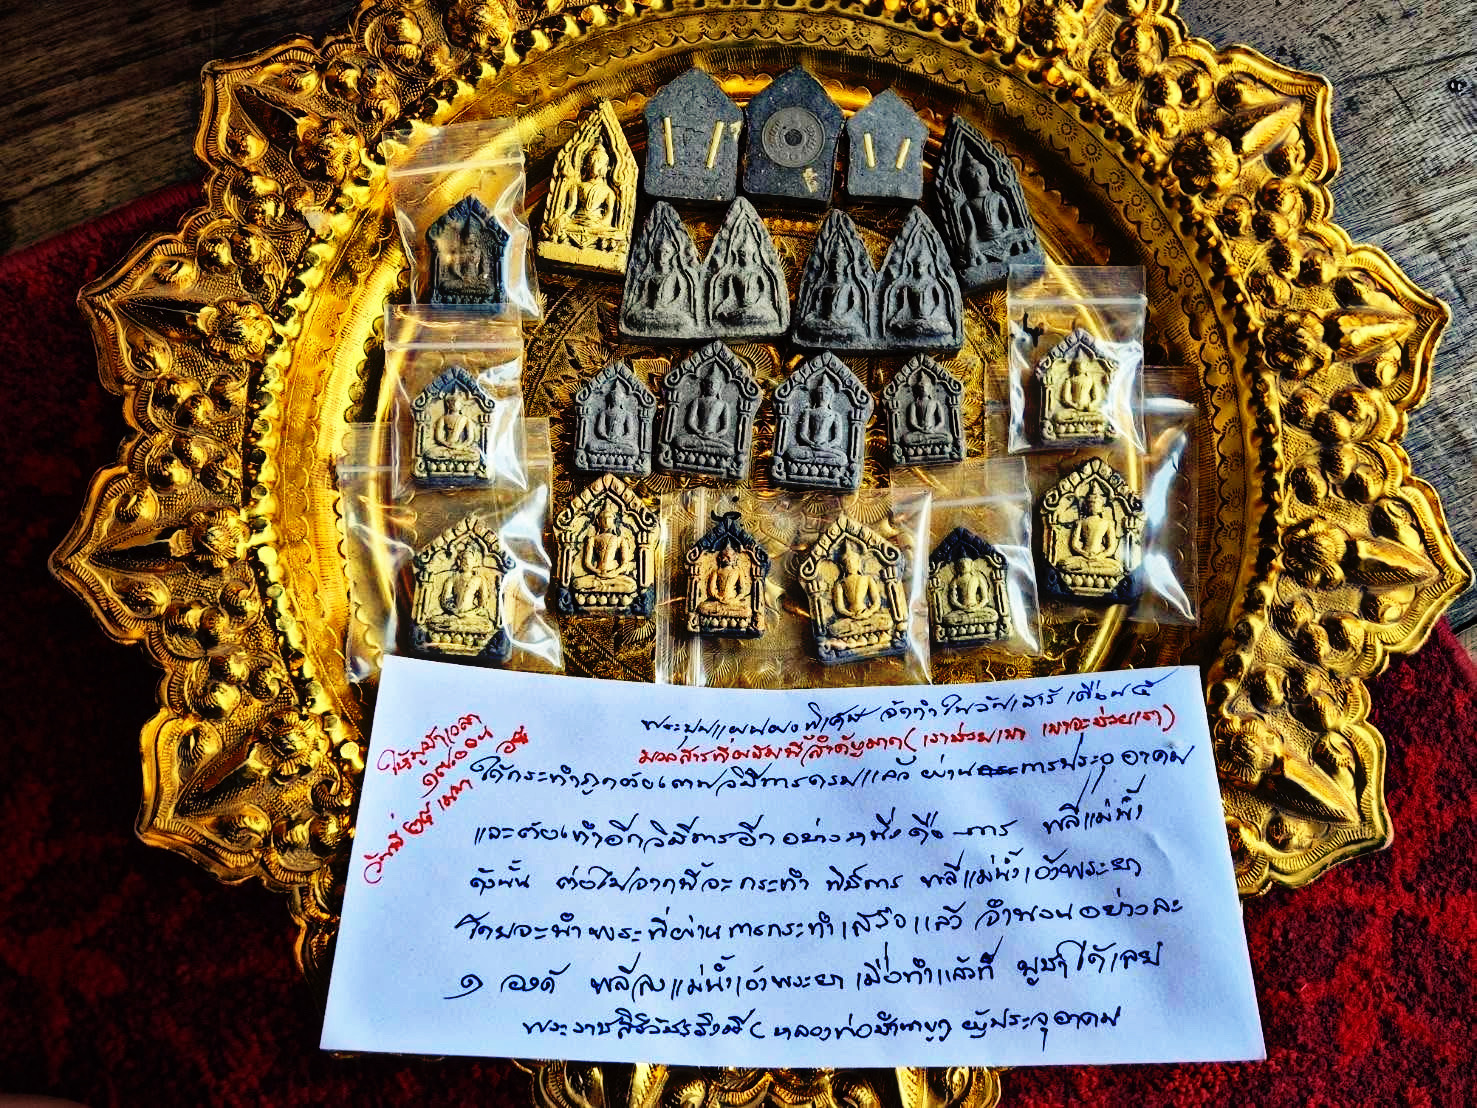 พระขุนแผนผงพิเศษ จัดทำในวันเสาร์ เดือน ๕
มวลสารที่ผสมก็สำคัญมาก ( เราช่วยเขา เขาจะช่วยเรา )
ได้กระทำถูกต้องตามวิธีการครบแล้ว ผ่านการประจุอาคม
และต้องทำอีกวิธีการอีกอย่างหนึ่งคือ การ พลีแม่น้ำ
ดังนั้น ต่อไปจากนี้จะกระทำ พิธีการ พลีแม่น้ำเจ้าพระยา
โดยจะนำพระที่ผ่านการกระทำเสร็จแล้ว จำนวนอย่างละ
๑ องค์ พลีลงแม่น้ำเจ้าพระยา เมื่อทำแล้วก็ บูชาได้เลย
พระราชสิริวัชรรังษี ( หลวงพ่อ ผู้ประจุอาคม
ให้บูชาเวลา